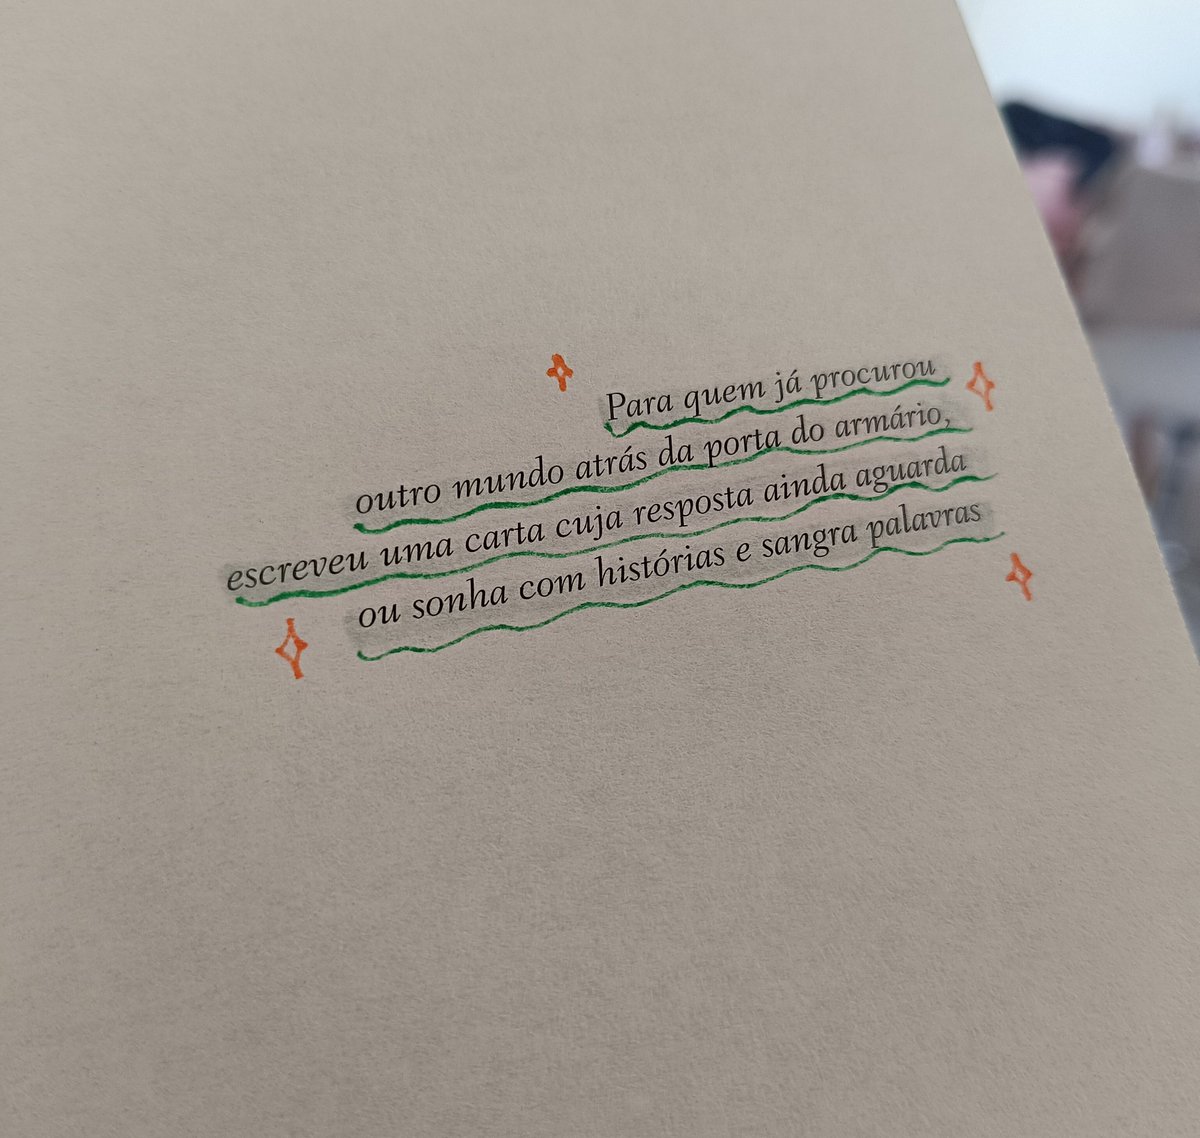 Para quem já procurou
outro mundo atrás da porta do armário,
escreveu uma carta cuja resposta ainda aguarda
ou sonha com histórias e sangra palavras